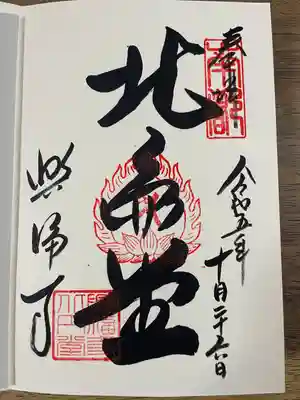 奉拝
令和五年
十月二十六日
北円堂
興福寺